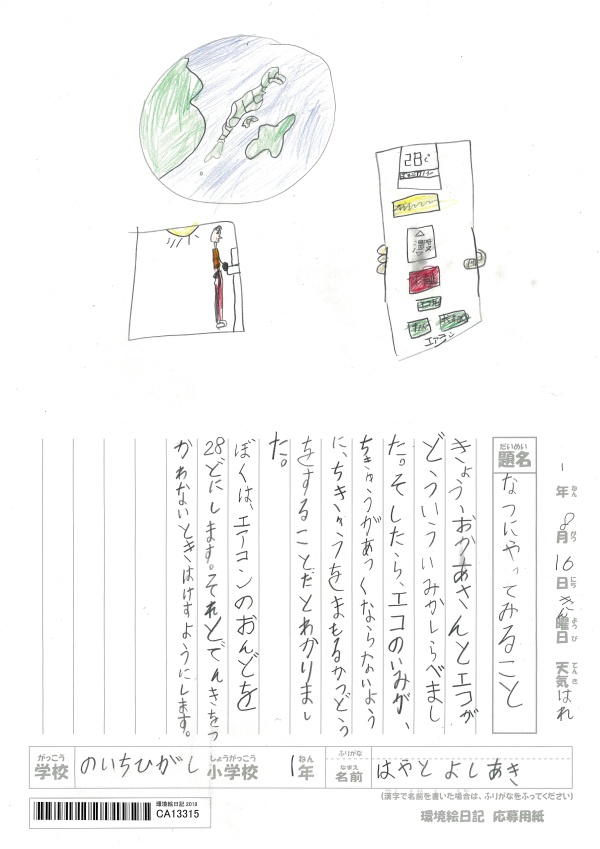 28℃
エアコン
1年 8月 16日 きん曜日 天気 はれ
ねん がつ にち ようび てんき
だいめい
題名 なつにやってみること
きょう、おかあさんとエコが
どういういみかしらべまし
た。そしたら、エコのいみが、
ちきゅうがあつくならないよう
に、ちきゅうをまもるかつどう
をすることだとわかりまし
た。
ぼくは、エアコンのおんどを
28どにします。それとでんきをつ
かわないときはけすようにします。
がっこう
学校 のいちひがし 小学校 1年
しょうがっこう ねん
ふりがな
なまえ
名前 はやと よしあき
(漢字で名前を書いた場合は、ふりがなをふってください)
環境絵日記 2019
CA13315
環境絵日記 応募用紙